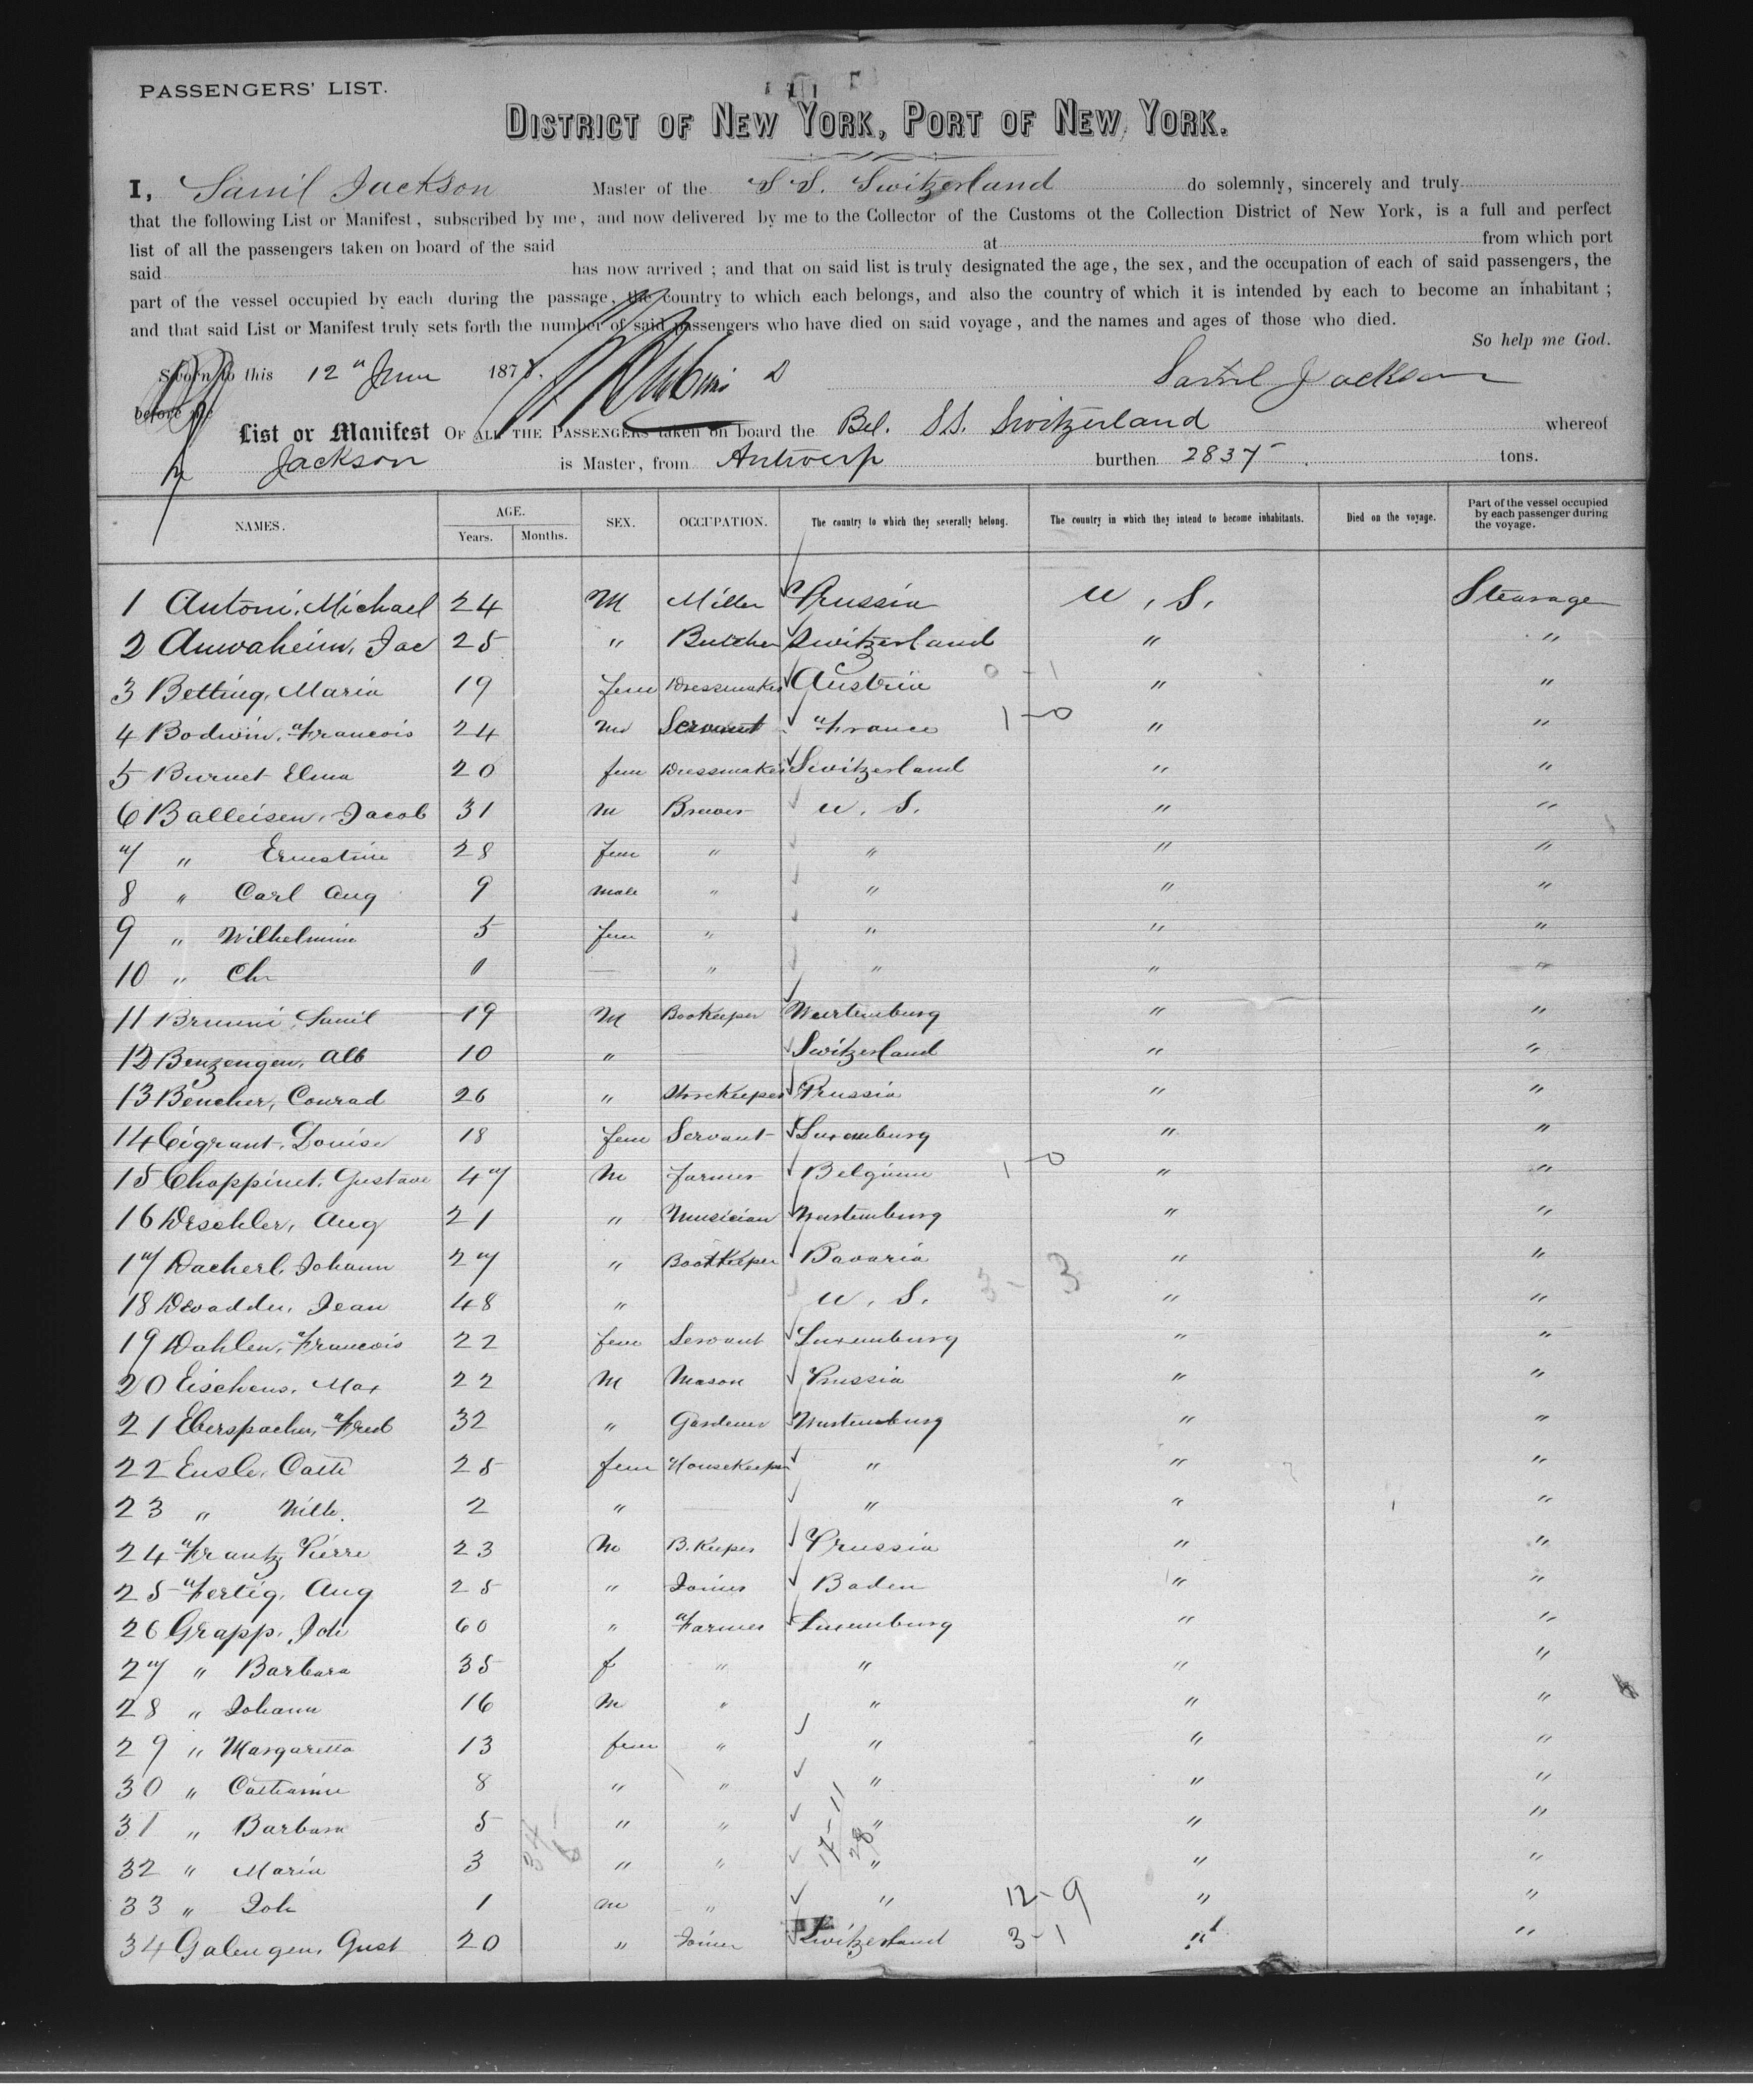 PASSENGERS' LIST.
DISTRICT OF NEW YORK, PORT OF NEW YORK.
I, Saml Jackson Master of the S S. Switzerland do solemnly, sincerely and truly
that the following List or Manifest, subscribed by me, and now delivered by me to the Collector of the Customs ot the Collection District of New York, is a full and perfect
list of all the passengers taken on board of the said at from which port
said has now arrived ; and that on said list is truly designated the age, the sex, and the occupation of each of said passengers, the
part of the vessel occupied by each during the passage, the country to which each belongs, and also the country of which it is intended by each to become an inhabitant ;
and that said List or Manifest truly sets forth the number of said passengers who have died on said voyage, and the names and ages of those who died.
So help me God.
Sworn to this 12" June 1878. Saml Jackson
before me
List or Manifest OF ALL THE PASSENGERS taken on board the Bel. SS. Switzerland whereof
Jackson is Master, from Antwerp burthen 2837 tons.
NAMES. AGE. Years. Months. SEX. OCCUPATION. The country to which they severally belong. The country in which they intend to become inhabitants. Died on the voyage. Part of the vessel occupied by each passenger during the voyage.
1 Antoni, Michael 24 M Miller Prussia U. S. Stearage
2 Anwaheim, Jac 25 " Butcher Switzerland " "
3 Betting, Maria 19 fem Dressmaker Austria 0-1 " "
4 Bodwin, Francois 24 M Servant France 1-0 " "
5 Burnet Elma 20 fem Dressmaker Switzerland " "
6 Balleisen, Jacob 31 M Brewer U. S. " "
7 " Ernestine 28 fem " " " "
8 " Carl Aug 9 male " " " "
9 " Wilhelmine 5 fem " " " "
10 " Chr 1 — " " " "
11 Brunni, Saml 19 M Bookeeper Wurtemburg " "
12 Benzengen, Alb 10 " — Switzerland " "
13 Bencher, Conrad 26 " Storekeeper Prussia " "
14 Cigrant, Louise 18 fem Servant Luxemburg " "
15 Choppinet, Gustave 47 M farmer Belgium 1-0 " "
16 Deschler, Aug 21 " Musician Wurtemburg " "
17 Dacherl, Johann 27 " Bookkeeper Bavaria " "
18 Devadder, Jean 48 " U. S. 3-3 " "
19 Dahlen, Francois 22 fem Servant Luxemburg " "
20 Eischens, Max 22 M Mason Prussia " "
21 Eberspacher, Fred 32 " Gardener Wurtemburg " "
22 Ensle, Cath 25 fem Housekeeper " " "
23 " Wilh. 2 " — " " "
24 Frantz, Pierre 23 M B. Keeper Prussia " "
25 Fertig, Aug 25 " Joiner Baden " "
26 Grapp, Joh 60 " Farmer Luxemburg " "
27 " Barbara 35 f " " " "
28 " Johann 16 M " " " "
29 " Margaretta 13 fem " " " "
30 " Catharine 8 " " " " "
31 " Barbara 5 " " " " "
32 " Maria 3 " " " " "
33 " Joh 1 m " " 12-9 " "
34 Galengen, Gust 20 " Joiner Switzerland 3-1 " "